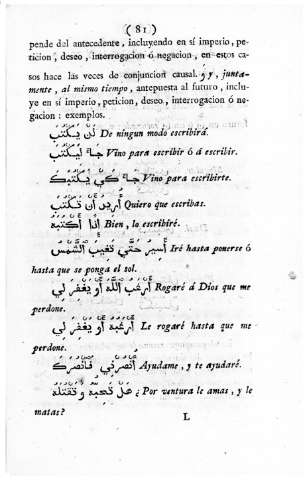 ( 81 )
pende del antecedente, incluyendo en sí imperio, pe-
ticion, deseo, interrogacion ó negacion, en estos ca-
sos hace las veces de conjuncion causal. و y, junta-
mente, al mismo tiempo, antepuesta al futuro, inclu-
ye en sí imperio, peticion, deseo, interrogacion ó ne-
gacion: exemplos.
لن يكتب De ningun modo escribirá.
جاء ليكتب Vino para escribir ó á escribir.
جاء كي يكتبك Vino para escribirte.
أريد أن تكتب Quiero que escribas.
إذا أكتبه Bien, lo escribiré.
أسير حتي تغيب الشمس Iré hasta ponerse ó
hasta que se ponga el sol.
أرغب الله أو يغفر لي Rogaré á Dios que me
perdone.
أرغبه أو يغفر لي Le rogaré hasta que me
perdone.
أنصرني فأنصرك Ayudame, y te ayudaré.
هل تحبه وتقتله ¿Por ventura le amas, y le
matas?
L